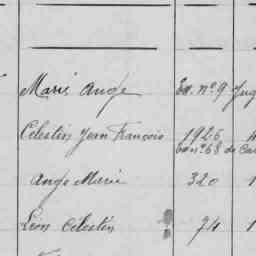 Marie Ange Ex. nº 9 Jug
Célestin Jean François 1926
Ex nº 68 de Ca
Ange Marie 320 1
Léon Célestin 74 1